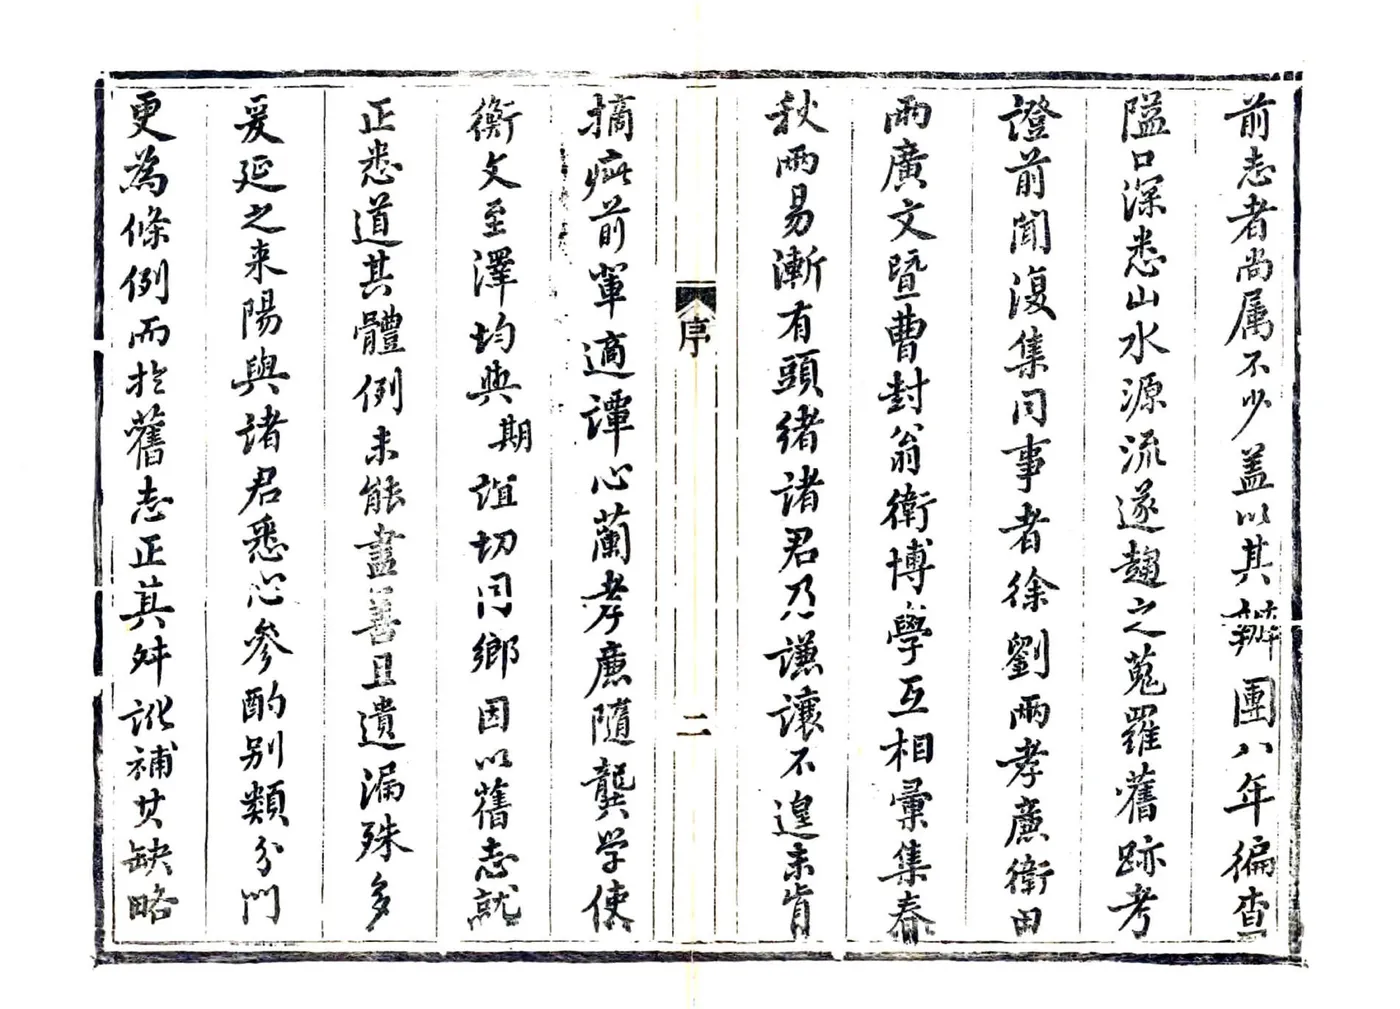 前志者尚属不少盖以其辦團八年徧查
隘口深悉山水源流遂趨之蒐羅舊跡考
證前聞復集同事者徐劉兩孝廉衛田
兩廣文暨曹封翁衛博學互相彙集春
秋兩易漸有頭緒諸君乃謙讓不遑未肯
序
二
摘疵前軰適譚心蘭孝廉隨龔学使
衡文至澤均與期誼切同鄉因以舊志就
正悉道其體例未能盡善且遺漏殊多
爰延之来陽與諸君悉心參酌别類分門
更為條例而扵舊志正其舛訛補其缺略